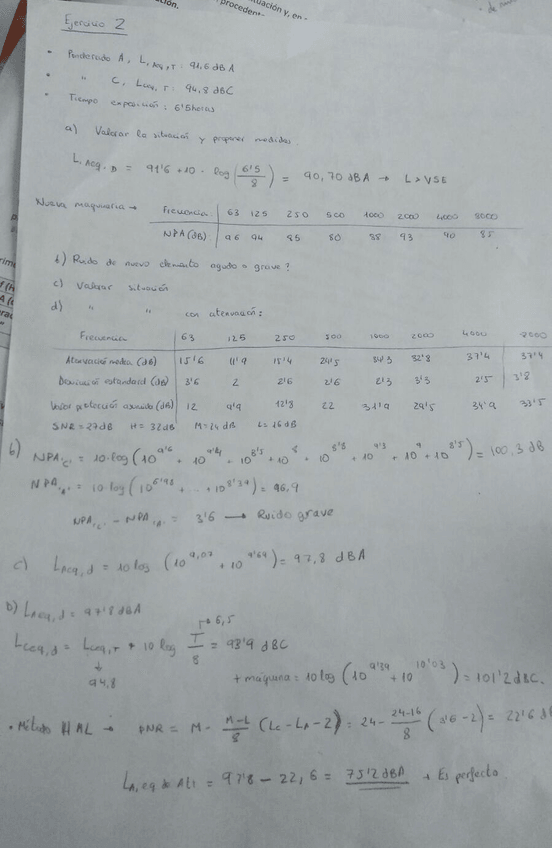 procedent-
uación y, en
Ejercicio 2
• Ponderado A, L,Aeq,T: 91,6 dBA
• " C, Lceq,T: 94,8 dBC
• Tiempo exposición: 6'5 horas
a) Valorar la situación y proponer medidas.
L,Aeq,D = 91'6 + 10 · log (6'5/8) = 90,70 dBA → L > VSE
Nueva maquinaria → Frecuencia 63 125 250 500 1000 2000 4000 8000
NPA (dB) 96 94 85 80 88 93 90 85
b) Ruido de nuevo elemento agudo o grave?
c) Valorar situación
d) " " con atenuación:
Frecuencia 63 125 250 500 1000 2000 4000 8000
Atenuación media (dB) 15'6 11'9 15'4 24'5 34'3 32'8 37'4 37'4
Desviación estandard (dB) 3'6 2 2'6 2'6 2'3 3'3 2'5 3'8
Valor protección asumida (dB) 12 9'9 12'8 22 31'9 29'5 34'9 33'5
SNR = 27dB H = 32dB M = 24 dB L = 16dB
b) NPA,c, = 10·log (10^9'6 + 10^9'4 + 10^8'5 + 10^8 + 10^8'8 + 10^9'3 + 10^9 + 10^8'5) = 100,3 dB
NPA,A, = 10·log (10^6'98 + ... + 10^8'39) = 96,9
NPA,c, - NPA,A, = 3'6 → Ruido grave
c) LAeq,d = 10 log (10^9,07 + 10^9'69) = 97,8 dBA
D) LAeq,d = 97'8 dBA
T=6,5
Lceq,d = Lceq,T + 10 log T/8 = 93'9 dBC
↓
94,8
+ maquina = 10 log (10^9'39 + 10^10'03) = 101'2 dBC.
• Método HML → PNR = M - M-L/8 (Lc - LA - 2) = 24 - 24-16/8 (3'6 - 2) = 22'6 dB
LA,eq Ati = 97'8 - 22,6 = 75'2 dBA → Es perfecto.